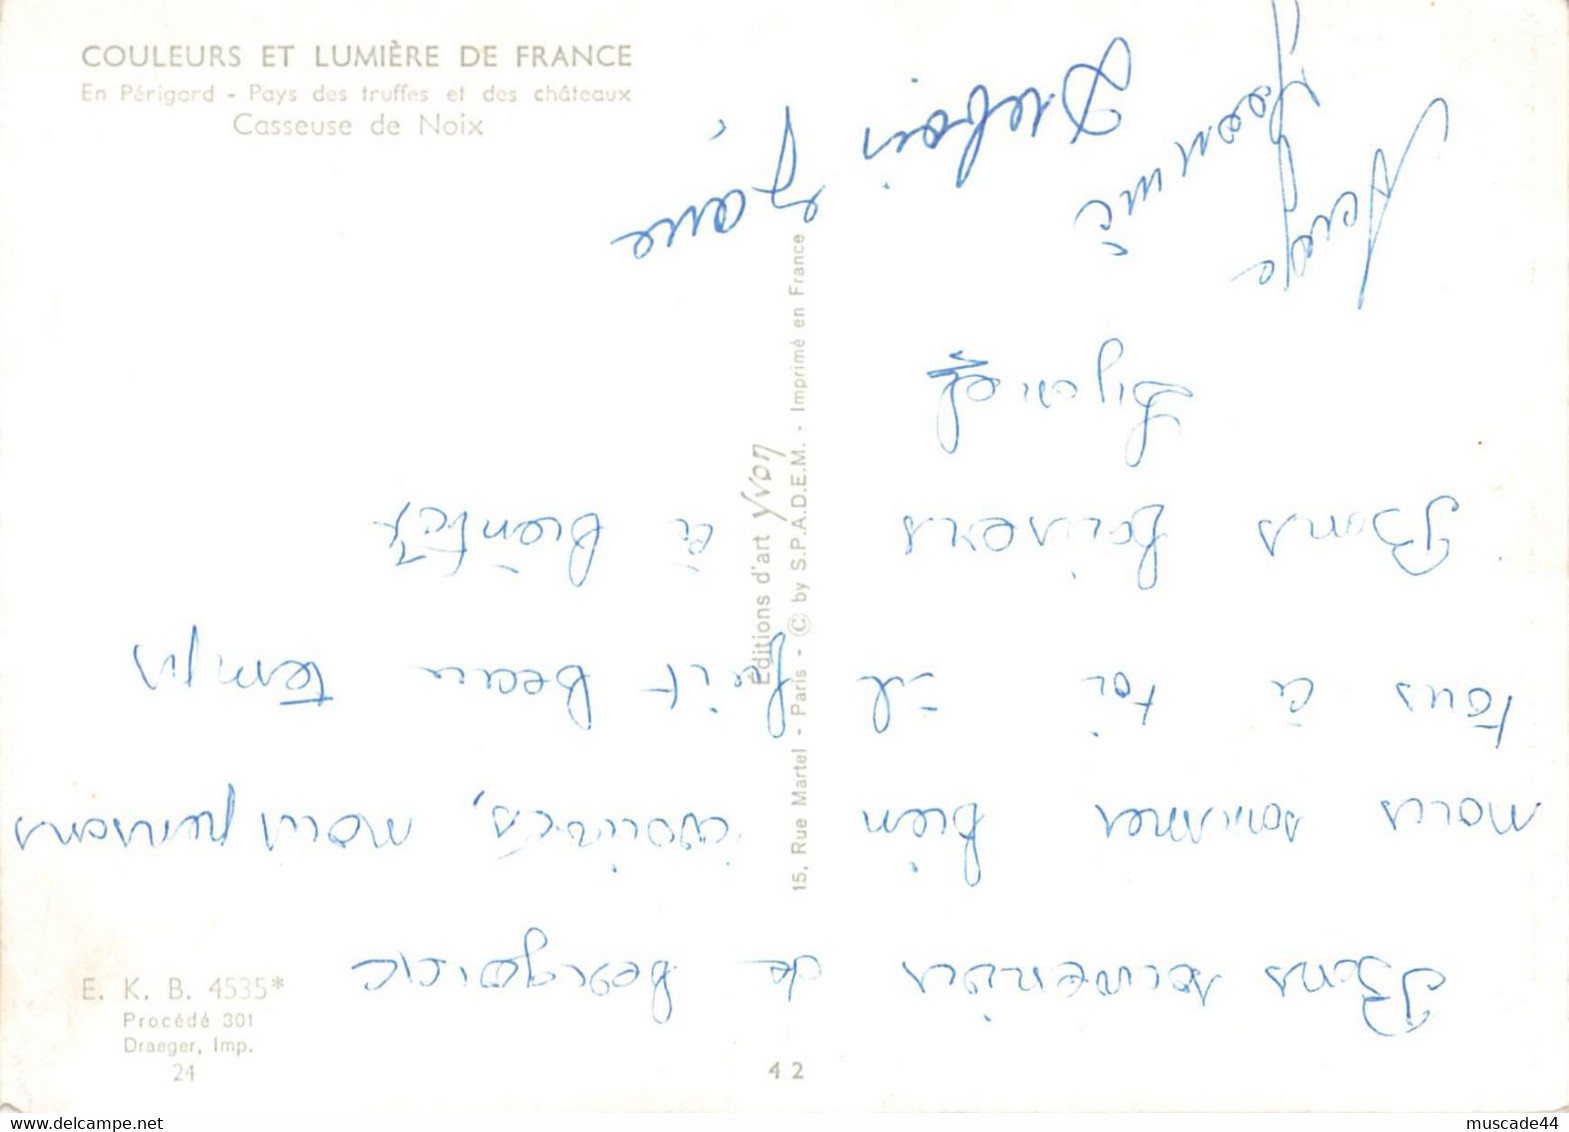 COULEURS ET LUMIÈRE DE FRANCE
En Périgord - Pays des truffes et des châteaux
Casseuse de Noix
Bons souvenirs de bergerac
nous sommes bien arrivés, nous pensons
tous à toi il fait beau temps
Bons baisers à bientôt
Serge
Éditions d'art Yvon
15, Rue Martel - Paris - © by S.P.A.D.E.M. - Imprimé en France
E. K. B. 4535*
Procédé 301
Draeger, Imp.
24
42
muscade44